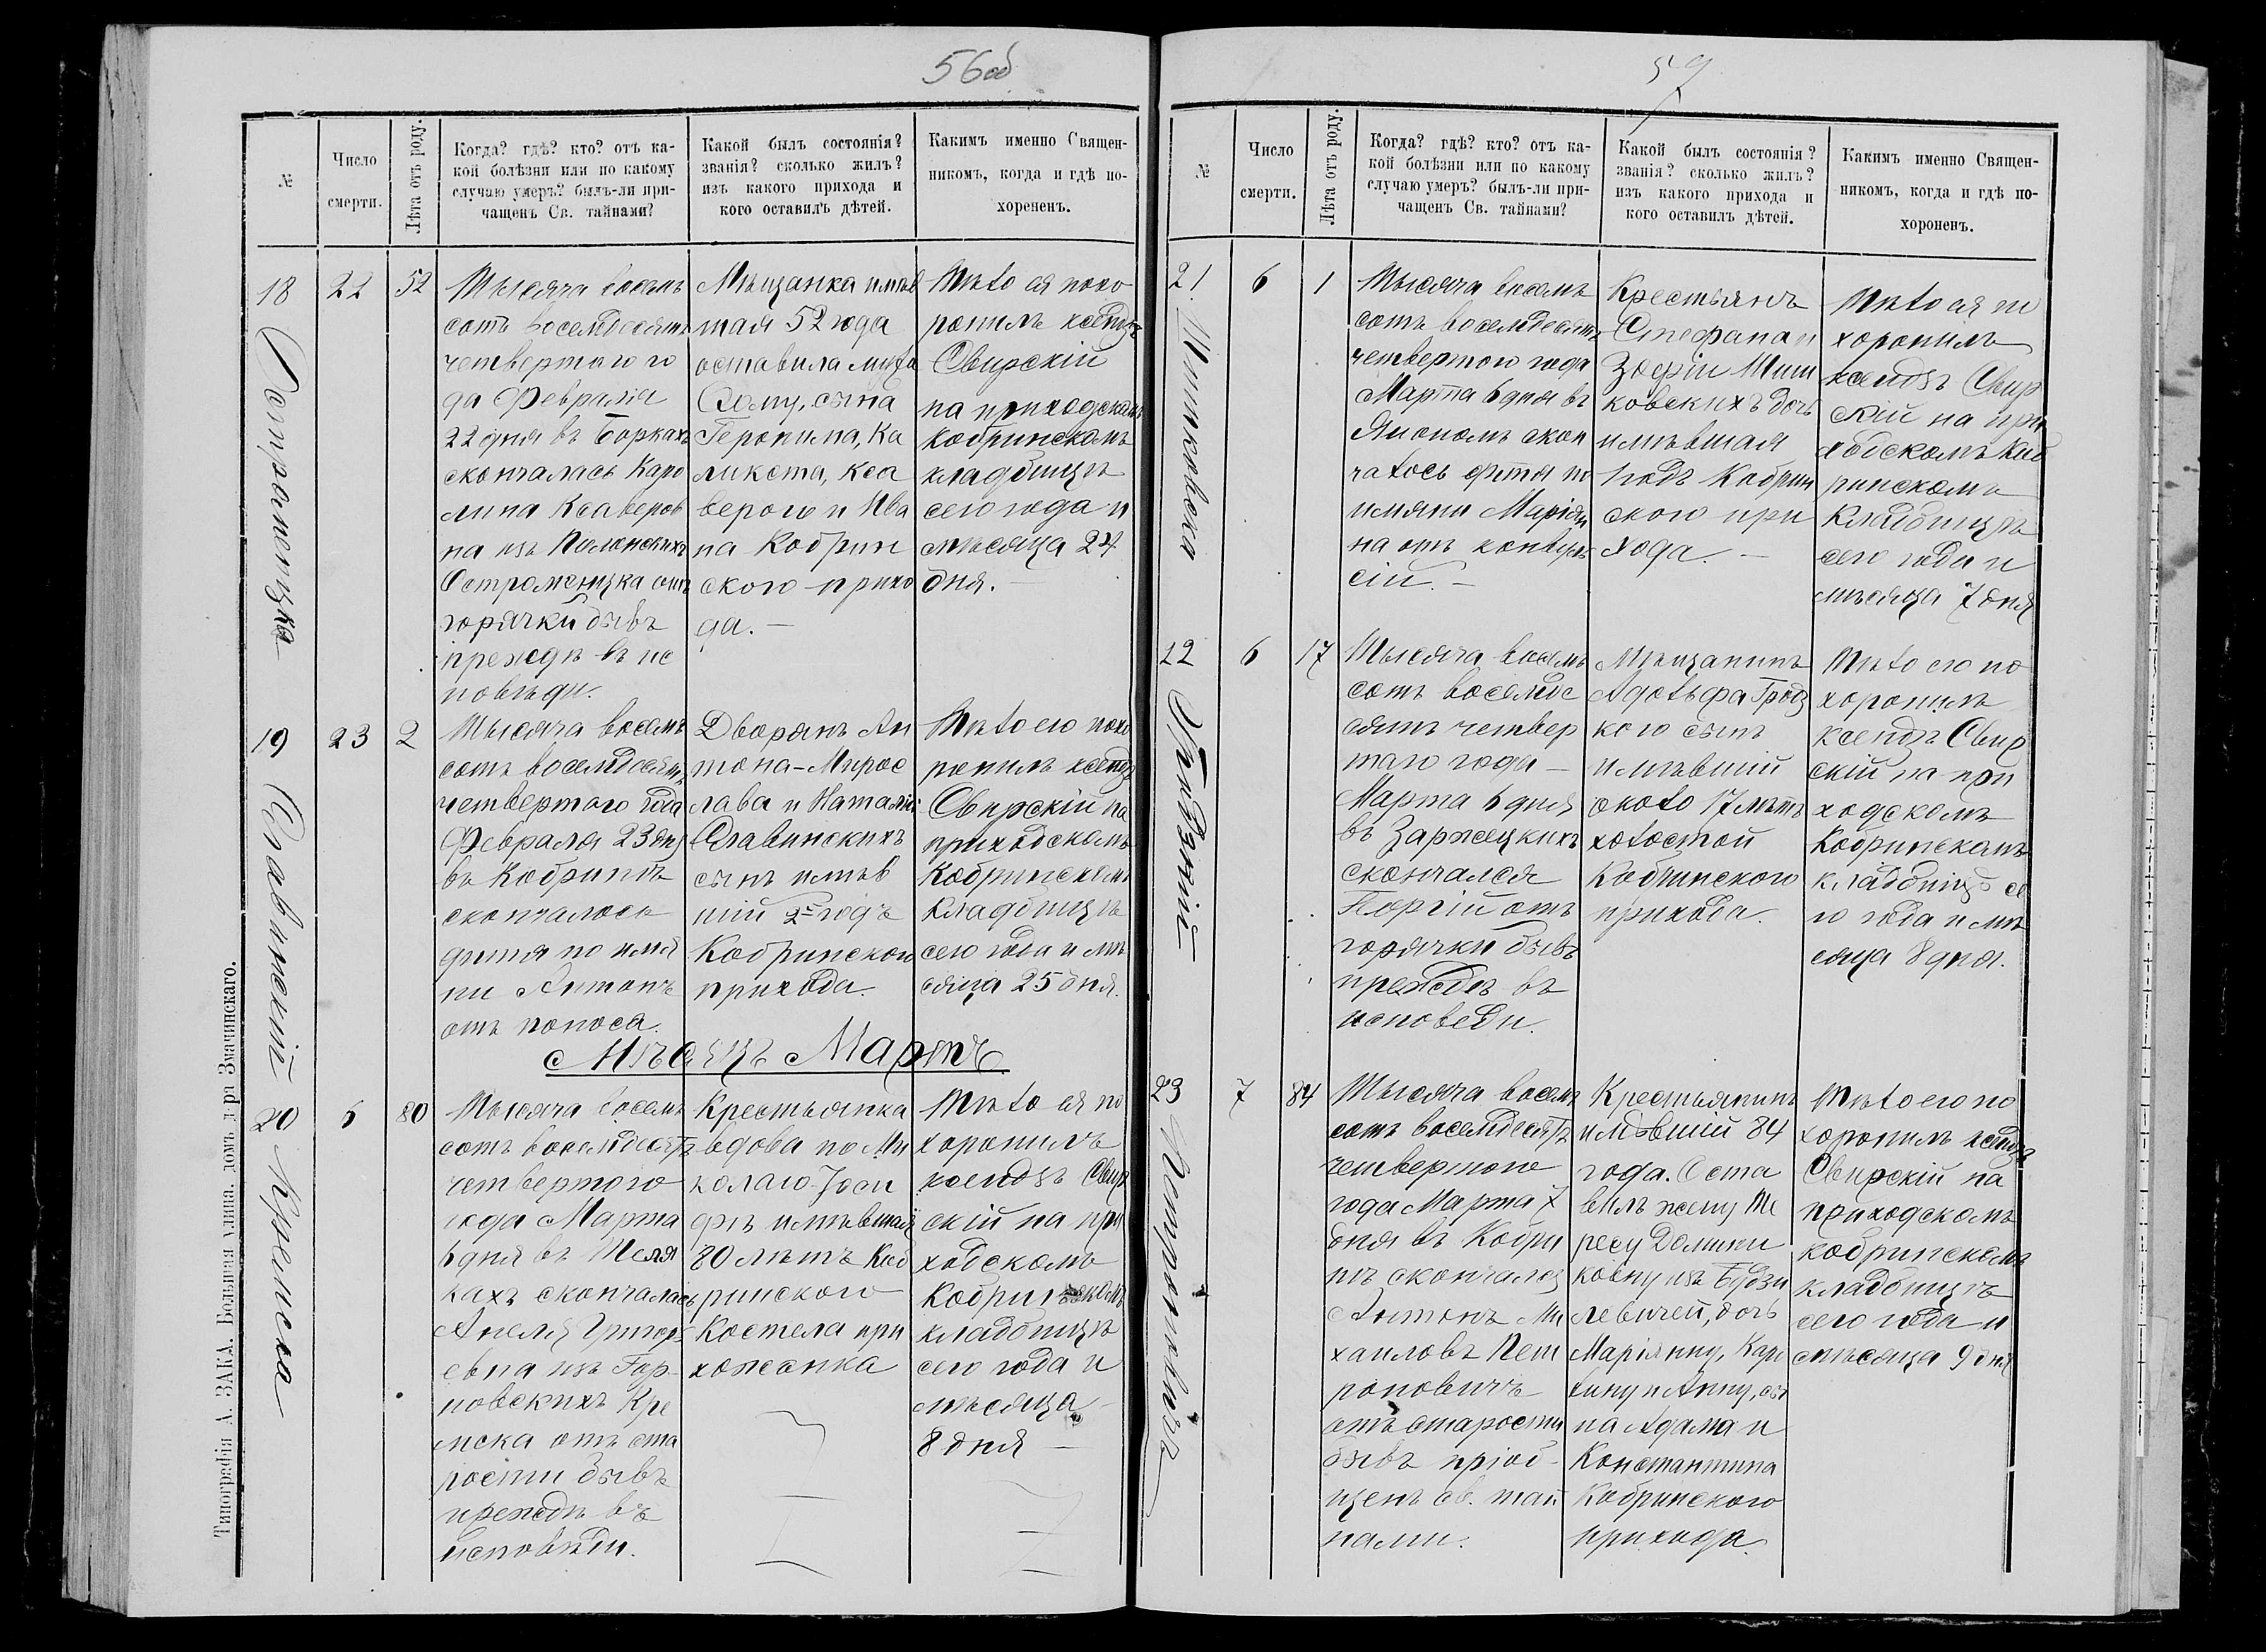 56об
№
Число
смерти.
Лѣта отъ роду.
Когда? гдѣ? кто? отъ ка-
кой болѣзни или по какому
случаю умеръ? былъ-ли при-
чащенъ Св. тайнами?
Какой былъ состоянія?
званія? сколько жилъ?
изъ какого прихода и
кого оставилъ дѣтей.
Какимъ именно Священ-
никомъ, когда и гдѣ по-
хороненъ.
18
22
52
Тысяча восемь
сотъ восемдесятъ
четвертого го
да Февралія
22 дня въ Боркахъ
скончалась Каро
лина Ксаверов
на изъ Полонскихъ
Остромецка отъ
горячки бывъ
преждѣ въ ис
повѣди.
Мѣщанка имѣв
шая 52 года
оставила мужа
Фому, сына
Геронима, Ка
ликста, Кса
верого и Ива
на Кобрин
ского прихо
да. —
Тѣло ея похо
ронилъ ксендзъ
Свирскій
на приходскомъ
кобринскомъ
кладбищѣ
сего года и
мѣсяца 24
дня. —
Остромецка
19
23
2
Тысяча восемь
сотъ восемдесятъ
четвертого года
Февраля 23 дня
въ Кобринѣ
скончалось
дитя по имя
ни Антонъ
отъ поноса.
Дворянъ Ан
тона-Мирос
лава и Наталіи
Славинскихъ
сынъ имѣв
шій 2 годъ
Кобринского
прихода.
Тѣло его похо
ронилъ ксендзъ
Свирскій на
приходскомъ
Кобринскомъ
кладбищѣ
сего года и мѣ
сяца 25 дня.
Славинскій
Мѣсяцъ Мартъ
20
6
80
Тысяча восемь
сотъ восемдесятъ
четвертого
года Марта
6 дня въ Теля
кахъ скончалась
Анеля Григорь
евна изъ Гор-
новскихъ Кре
мска отъ ста
рости бывъ
преждѣ въ
исповѣди.
Крестьянка
вдова по Ни
колаю Іоси
фѣ имѣвшая
80 лѣтъ Коб
ринского
Костела при
хожанка
Тѣло ея по
хоронилъ
ксендзъ Свир
скій на при
ходскомъ
Кобринскомъ
кладбищѣ
сего года и
мѣсяца
8 дня —
Кремска
Типографія А. ЗАКА. Большая улица. домъ д-ра Змачинскаго.
57
№
Число
смерти.
Лѣта отъ роду.
Когда? гдѣ? кто? отъ ка-
кой болѣзни или по какому
случаю умеръ? былъ-ли при-
чащенъ Св. тайнами?
Какой былъ состоянія?
званія? сколько жилъ?
изъ какого прихода и
кого оставилъ дѣтей.
Какимъ именно Священ-
никомъ, когда и гдѣ по-
хороненъ.
21
6
1
Тысяча восемь
сотъ восемдесятъ
четвертого года
Марта 6 дня въ
скон
чалось дитя по
имяни Маріян
на отъ конвуль
сій. —
Крестьянъ
Стефана и
Зофіи Шиш
ковскихъ дочь
имѣвшая
годъ Кобрин
ского при
хода. —
Тѣло ея по
хоронилъ
ксендзъ Свир
скій на при
ходскомъ Коб
ринскомъ
Кладбищѣ
сего года и
мѣсяца 7 дня
Шишковска
22
6
17
Тысяча восемь
сотъ восемде
сятъ четвер
таго года —
Марта 6 дня
въ Заржецкихъ
скончался
отъ
горячки бывъ
преждѣ въ
исповѣди.
Мѣщанинъ
Адольфа Грод
кого сынъ
имѣвшій
около 17 лѣтъ
холостой
Кобринского
прихода.
Тѣло его по
хоронилъ
ксендзъ Свир
скій на при
ходскомъ
Кобринскомъ
кладбищѣ се
го года и мѣ
сяца 8 дня.
23
7
84
Тысяча восемь
сотъ восемдесятъ
четвертого
года Марта 7
дня въ Кобри
нѣ скончался
Антонъ Ми
хаиловъ Пет
роновичъ
отъ старости
бывъ пріоб-
щенъ св. тай
нами.
Крестьянинъ
имѣвшій 84
года. Оста
вилъ жену Те
ресу Домини
ковну изъ Будзи
левичей, дочь
Маріянну, Каро
лину и Анну, сы
на Адама и
Константина
Кобринского
прихода.
Тѣло его по
хоронилъ ксендзъ
Свирскій на
приходскомъ
кобринскомъ
кладбищѣ
сего года и
мѣсяца 9 дня
Петроновичъ